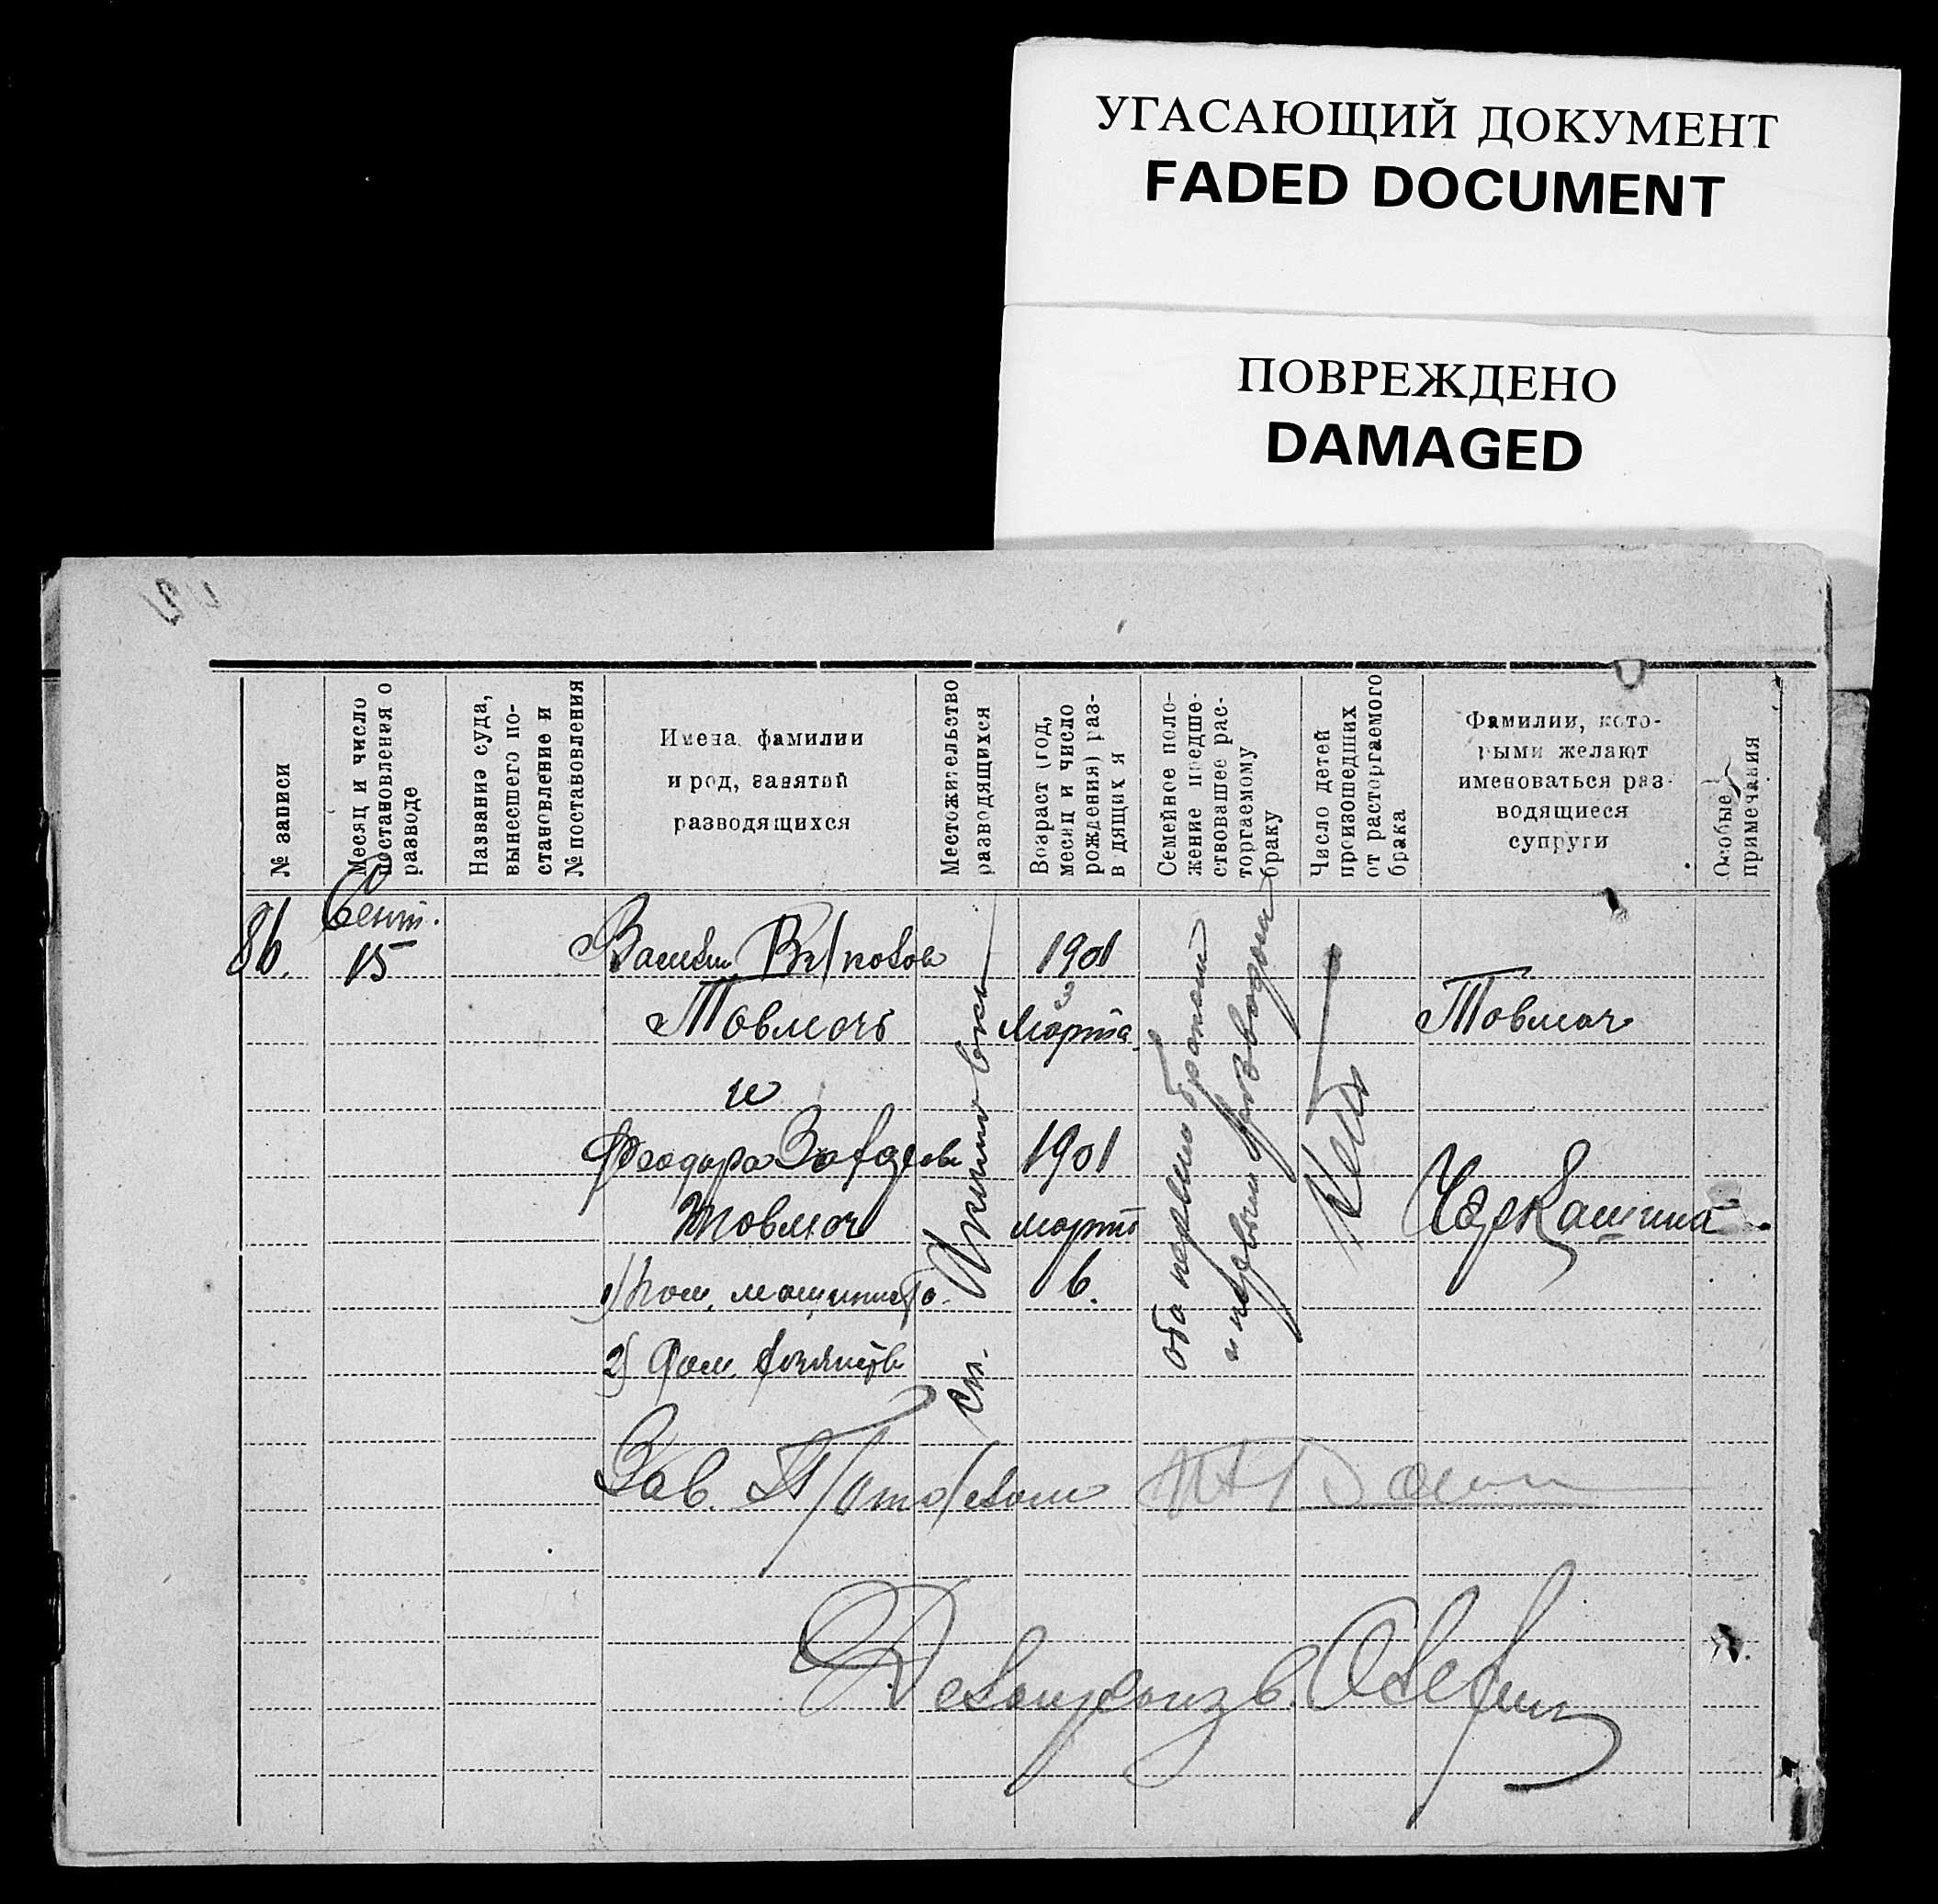 УГАСАЮЩИЙ ДОКУМЕНТ
FADED DOCUMENT
ПОВРЕЖДЕНО
DAMAGED
№ записи
Месяц и число
постановления о
разводе
Название суда,
вынесшего по-
становление и
№ постановления
Имена, фамилии
и род, занятий
разводящихся
Местожительство
разводящихся
Возраст (год,
месяц и число
рождения) раз-
в дящих я
Семейное поло-
жение предше-
ствовавшее рас-
торгаемому
браку
Число детей
происшедших
от расторгаемого
брака
Фамилии, кото-
рыми желают
именоваться раз-
водящиеся
супруги
Особые
примечания
86.
Сент.
15
Товмач
и
Феодора
Товмач
1) пом. машиниста
2) дом.
ст.
1901
3
Марта
1901
марта
6.
оба первым браком
и первым разводом
Нет
Товмач
Черкашина
Зав.
Делопроизв.